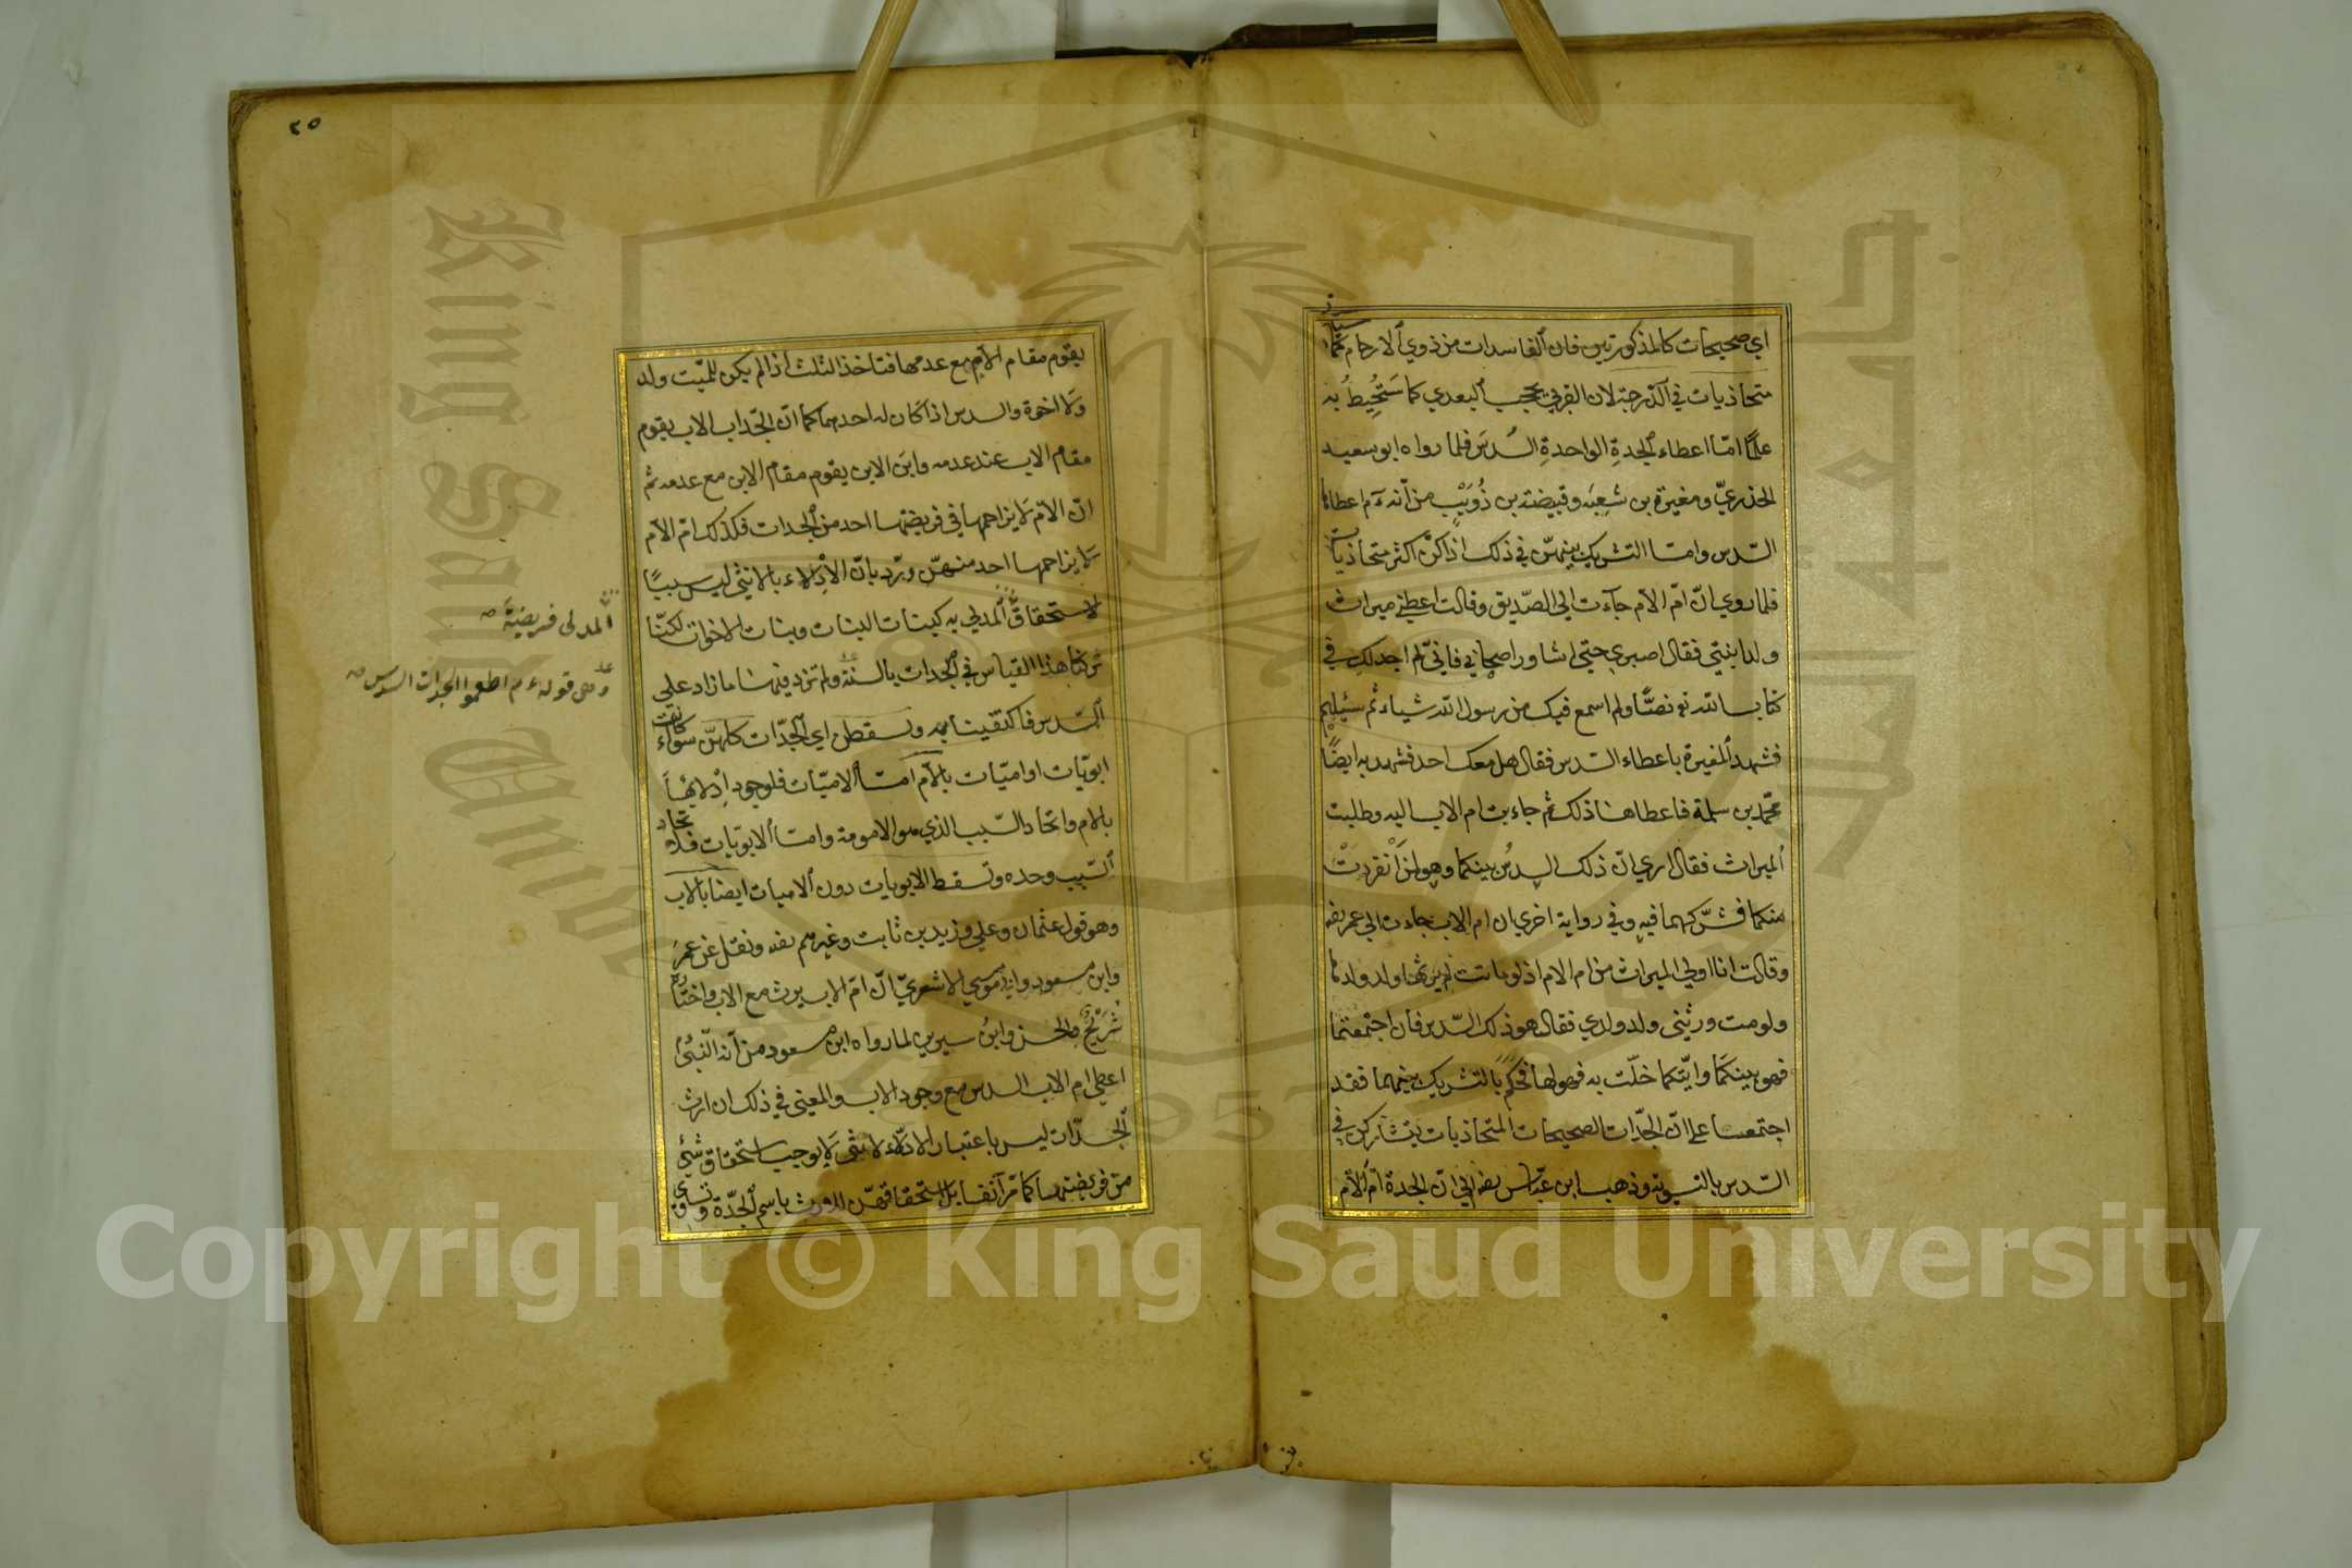 اي صحيحات كالمذكورتين فان الفاسدات من ذوي الارحام كما سيأتي
متحاذيات في الدرجة لان القربى يحجب البعدي كما ستحيط به
علما امّا اعطاء الجدةِ الواحدةِ السُدسَ فلما رواه ابو سعيد
الخذريّ ومغيرة بن شعبه وقبيضته بن ذُوَيْبٍ من أنه ءم اعطاها
السّدس وامّا التشريك بينهنّ في ذلك اذا كنّ اكثر متحاذيات
فلما روي انّ امّ الام جآءت الى الصّديق وقالت اعطني ميراث
ولد ابنتي فقال اصبري حتي اشاور اصحابي فانيّ لم اجد لكِ في
كتاب الله تع نصّا ولم اسمع فيك من رسول الله شياء ثم سئيلهم
فشهد المغيرة باعطاء السّدس فقال هل معك احد فشهد به ايضًا
محّمد بن سلمة فاعطاها ذلك ثم جاءت ام الاب اليه وطلبت
الميراث فقال اري انّ ذلك السدسُ بينكما وهو لمن انفردتْ
منكما فشرّكهما فيه وفي رواية اخري ان ام الاب جاءت الي عمر رضه
وقالت انا اولي الميراث من ام الام اذ لو ماتت لم يرثها ولد ولدها
ولو مت ورثني ولد ولدي فقال هو ذلك السّدس فان اجتمعتما
فهو بينكما وايّتكما خلّت به فهو لها فحكم بالتشريك بينهما فقد
اجتمعا على انّ الجدّات الصحيحات المتحاذيات يتشاركن في
السّدس بالتسوية وذهب ابن عبّاس رضه الي انّ الجدة امّ الام
٢٥
يقوم مقام الام مع عدمها فتاخذ الثلث اذا لم يكن للميّت ولد
ولا اخوة والسدس اذا كان له احدهما كما انّ الجّد اب الاب يقوم
مقام الاب عند عدمه وابن الابن يقوم مقام الابن مع عدمه ثم
انّ الامّ لا يزاحمها في فريضتها احد من الجدات فكذلك امّ الام
لا يزاحمها احد منهنّ وردّ بانّ الادْلاء بالانثي ليس سببًا
لاستحقاق المدلي به كبينات البنات وبنات الاخوات لكنّا
تركنا هذا القياس في الجدات بالسنة ولم تزد فيها ما زاد علي
السّدس فاكتفينا به ويسقطن اي الجّدات كلهنّ سواء كانت
ابويّات او اميّات بالام امّا الاميّات فلوجود اِدْلائها
بالام واتحاد السّبب الذي هو الامومة وامّا الابويّات فلاتحاد
السّبب وحده وتسقط الابويات دون الاميات ايضا بالاب
وهو قول عثمان وعلي وزيد بن ثابت وغيرهم رضه ونقل عن عمر
وابن مسعود وابي موسي الاشعريّ انّ امّ الاب يرث مع الاب واختاره
شُرَيْحٌ والحسن وابنُ سيرين لما رواه ابن مسعود من أنه النّبيّ
اعطي ام الاب السدس مع وجود الاب والمعني في ذلك ان ارث
الجّدات ليس باعتبار الادلاء لانثي لا يوجب استحقاق شئ
من فريضتها كما مرّ آنفا بل استحقاقهنّ الارث باسم الجّدة وتساوي
المدلى فريضية صح
وهي قوله ءم اطعموا الجدات السدس صح
Copyright © King Saud University
King Saud University
1957